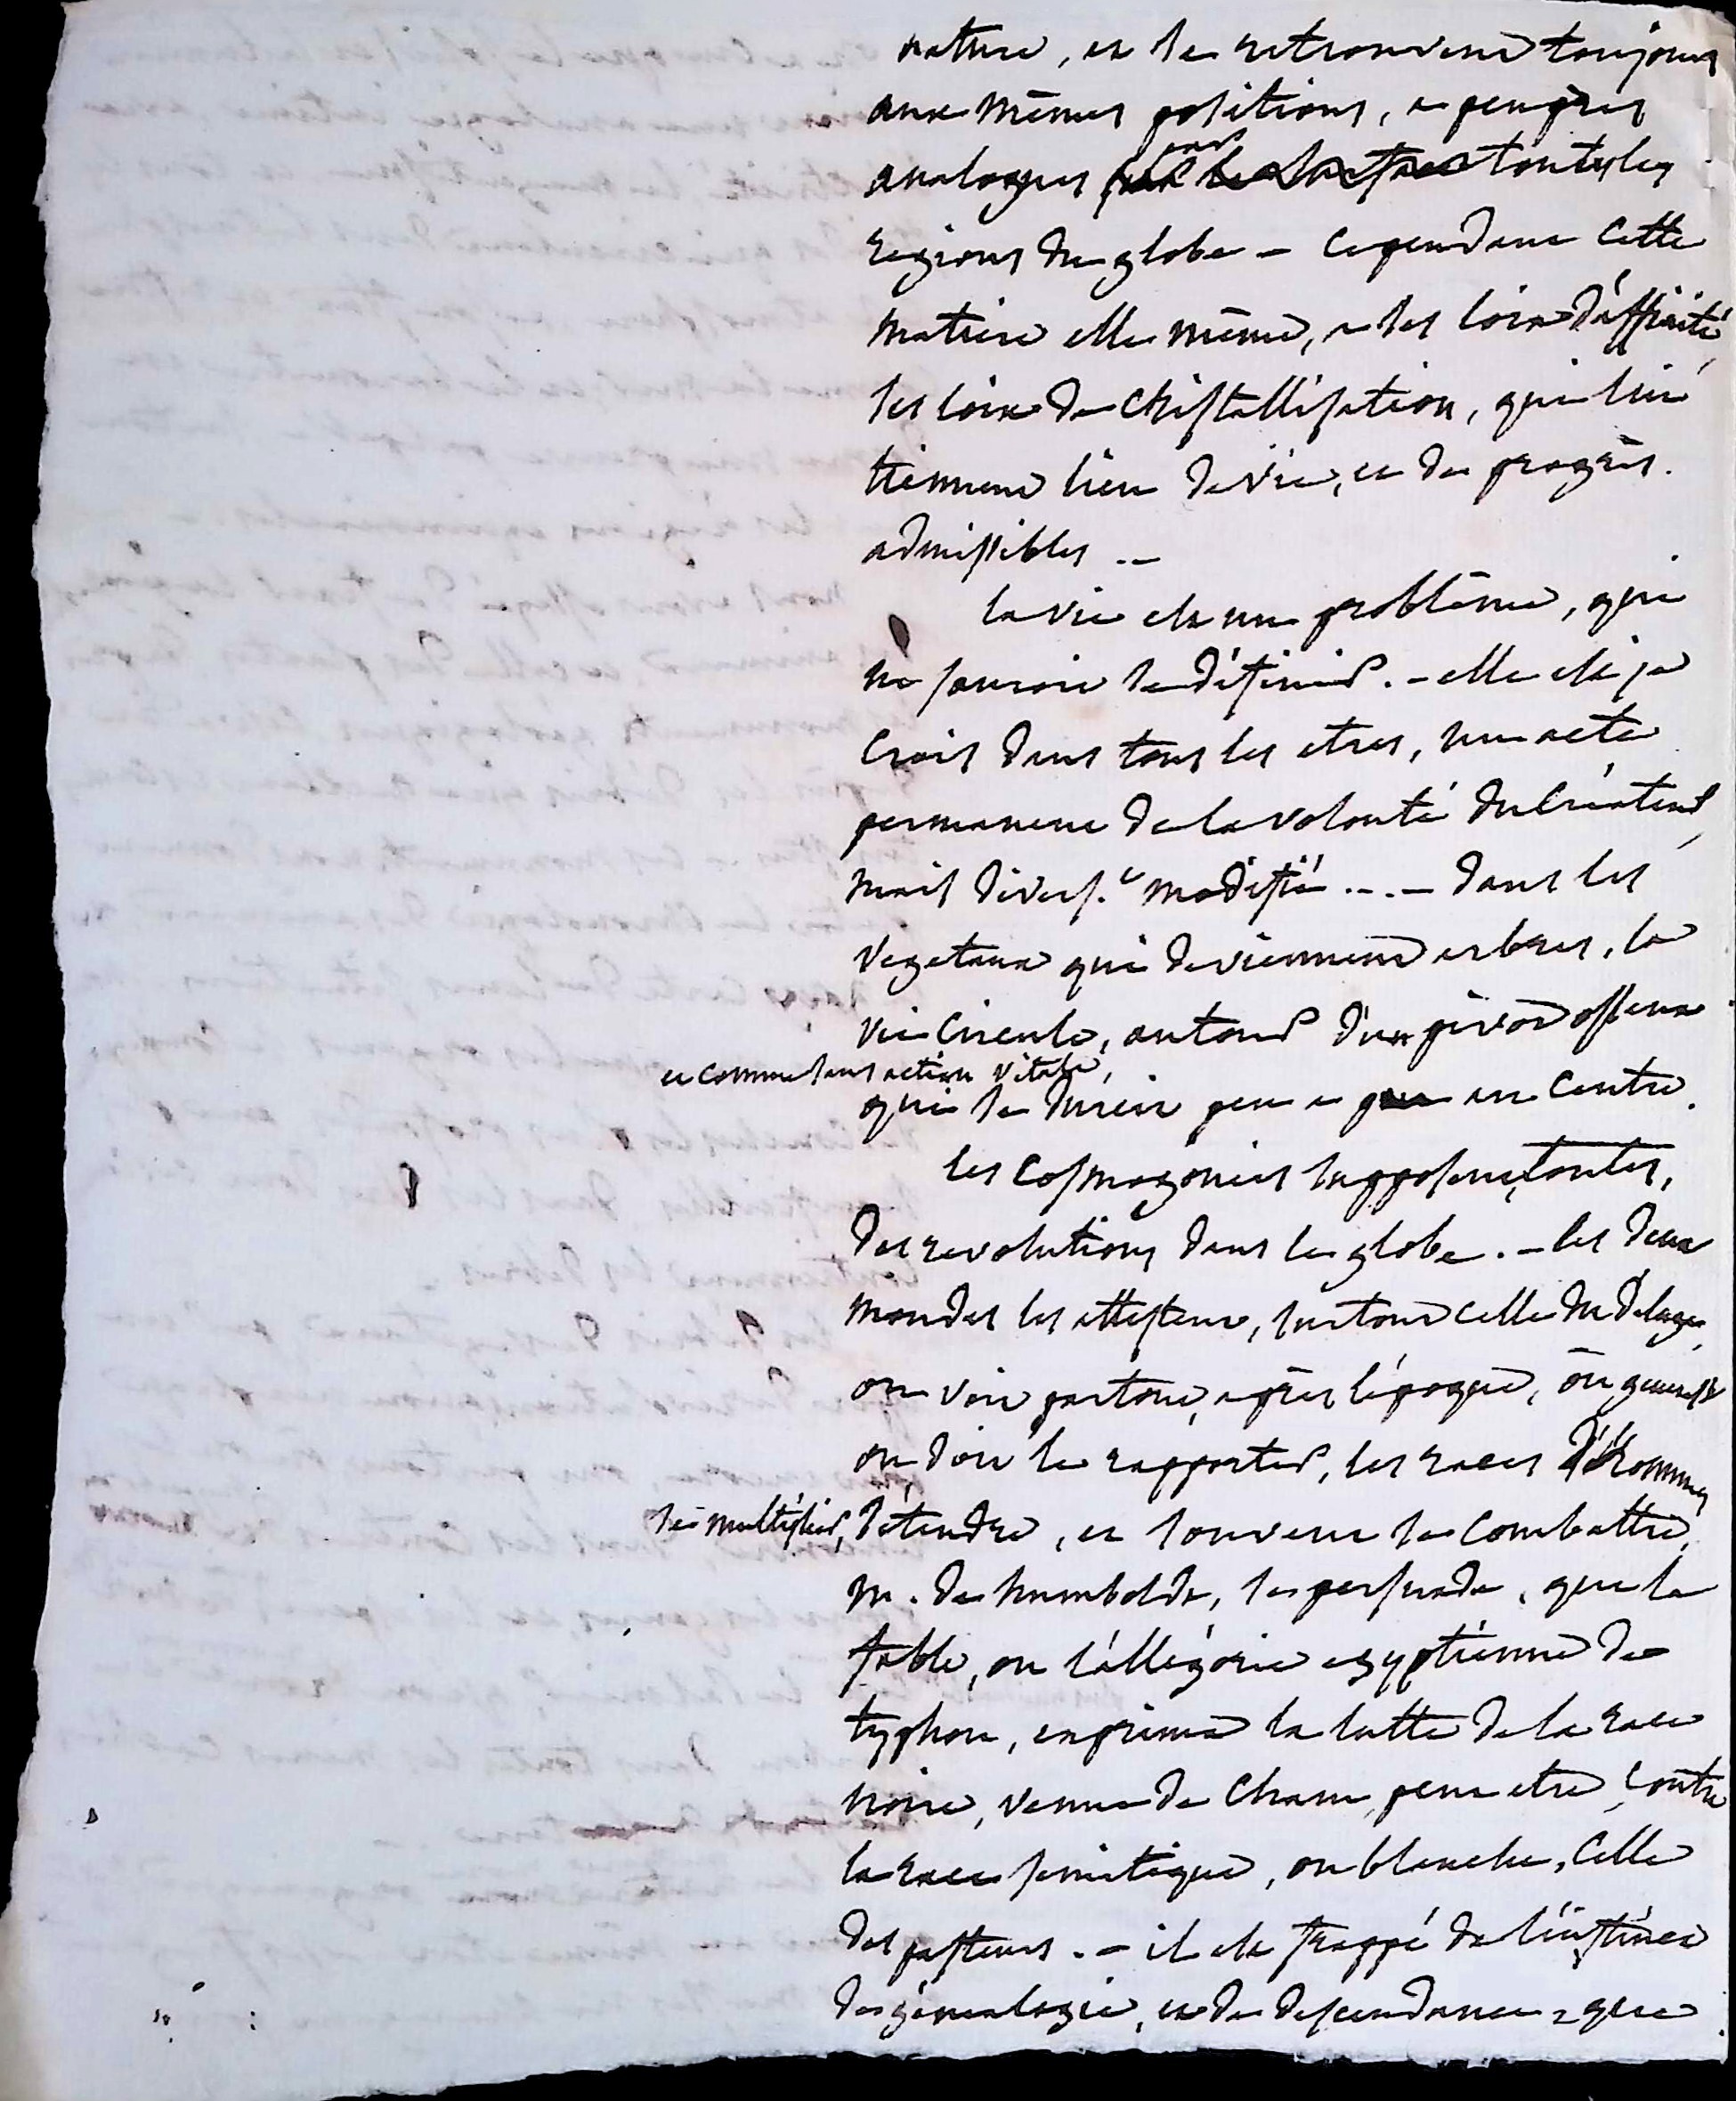 nature, et se retrouvent toujours
aux mêmes positions, a peu près
analogues sur toutes les
regions du globe – cependant cette
matiere elle même, a ses loix d'affinité
ses loix de christallisation, qui lui
tiennent lieu de vie, et de progrès
admissibles –
la vie est un problême, qui
ne sauroit se définir. – elle est je
crois dans tous les etres, un acte
permanent de la volonté du Créateur,
mais divers.t modifié ... – dans les
vegetaux qui deviennent arbres, la
vie circule, autour d'un pivot osseux
et comme sans action vitale,
qui se durcit peu a peu au centre.
les cosmogonies supposent, toutes,
des revolutions dans le globe. – les deux
mondes les attestent, surtout celle du deluge,
on voit partout, après l'époque, où
on doit la rapporter, les races d'hommes
se multiplier, s'étendre, et souvent se combattre,
m. de humboldt, se persuade, que la
fable, ou l'allégorie egyptienne de
typhon, exprime la lutte de la race
noire, venue de Cham peut etre, contre
la race semitique, ou blanche, celle
des pasteurs. – il est frappé de l'instinct
de géneálogie, et de descendance, que